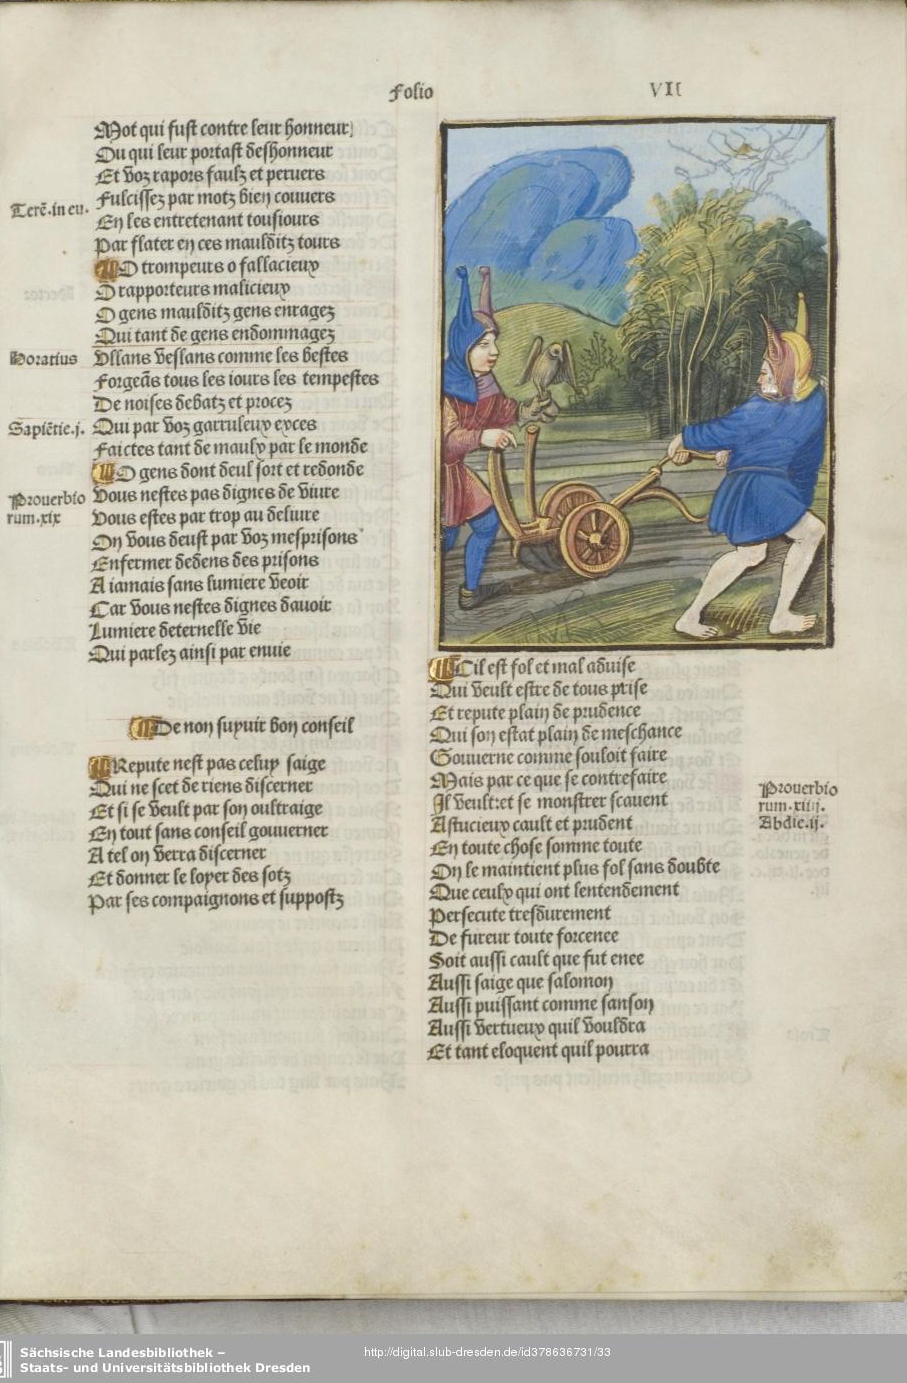 Folio
VII
Mot qui fust contre leur honneur
Ou qui leur portast deshonneur
Et voz rapors faulz et peruers
Fulcissez par motz bien couuers
Terē.in eu.
En les entretenant tousiours
Par flater en ces maulditz tours
O trompeurs o fallacieux
O rapporteurs malicieux
O gens maulditz gens enragez
Qui tant de gens endommagez
Horatius
Vllans vessans comme les bestes
Forgeās tous les iours les tempestes
De noises debatz et procez
Sapiētie.j.
Qui par voz garruleux exces
Faictes tant de maulx par le monde
O gens dont deul sort et redonde
Prouerbio
rum.xix
Vous nestes pas dignes de viure
Vous estes par trop au deliure
On vous deust par voz mesprisons
Enfermer dedens des prisons
A iamais sans lumiere veoir
Car vous nestes dignes dauoir
Lumiere deternelle vie
Qui parlez ainsi par enuie
De non suyuir bon conseil
Repute nest pas celuy saige
Qui ne scet de riens discerner
Et si se veult par son oultraige
En tout sans conseil gouuerner
A tel on verra discerner
Et donner le loyer des sotz
Par ses compaignons et suppostz
Cil est fol et mal aduise
Qui veult estre de tous prise
Et repute plain de prudence
Qui son estat plain de meschance
Gouuerne comme souloit faire
Mais par ce que se contrefaire
Il veult:et se monstrer scauent
Prouerbio
rum.xiij.
Abdie.ij.
Astucieux cault et prudent
En toute chose somme toute
On le maintient plus fol sans doubte
Que ceulx qui ont lentendement
Persecute tresdurement
De fureur toute forcenee
Soit aussi cault que fut enee
Aussi saige que salomon
Aussi puissant comme sanson
Aussi vertueux quil vouldra
Et tant eloquent quil pourra
Sächsische Landesbibliothek –
Staats- und Universitätsbibliothek Dresden
http://digital.slub-dresden.de/id378636731/33